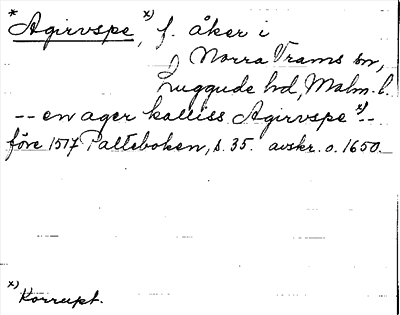 *Agirvspe, x) f. åker i
Norra Trams sn,
Luggude hd, Malm. l.
-- en ager kalliss Agirvspe x) --
före 1517 Palteboken, s. 35. avskr. o. 1650.
x) Korrupt.